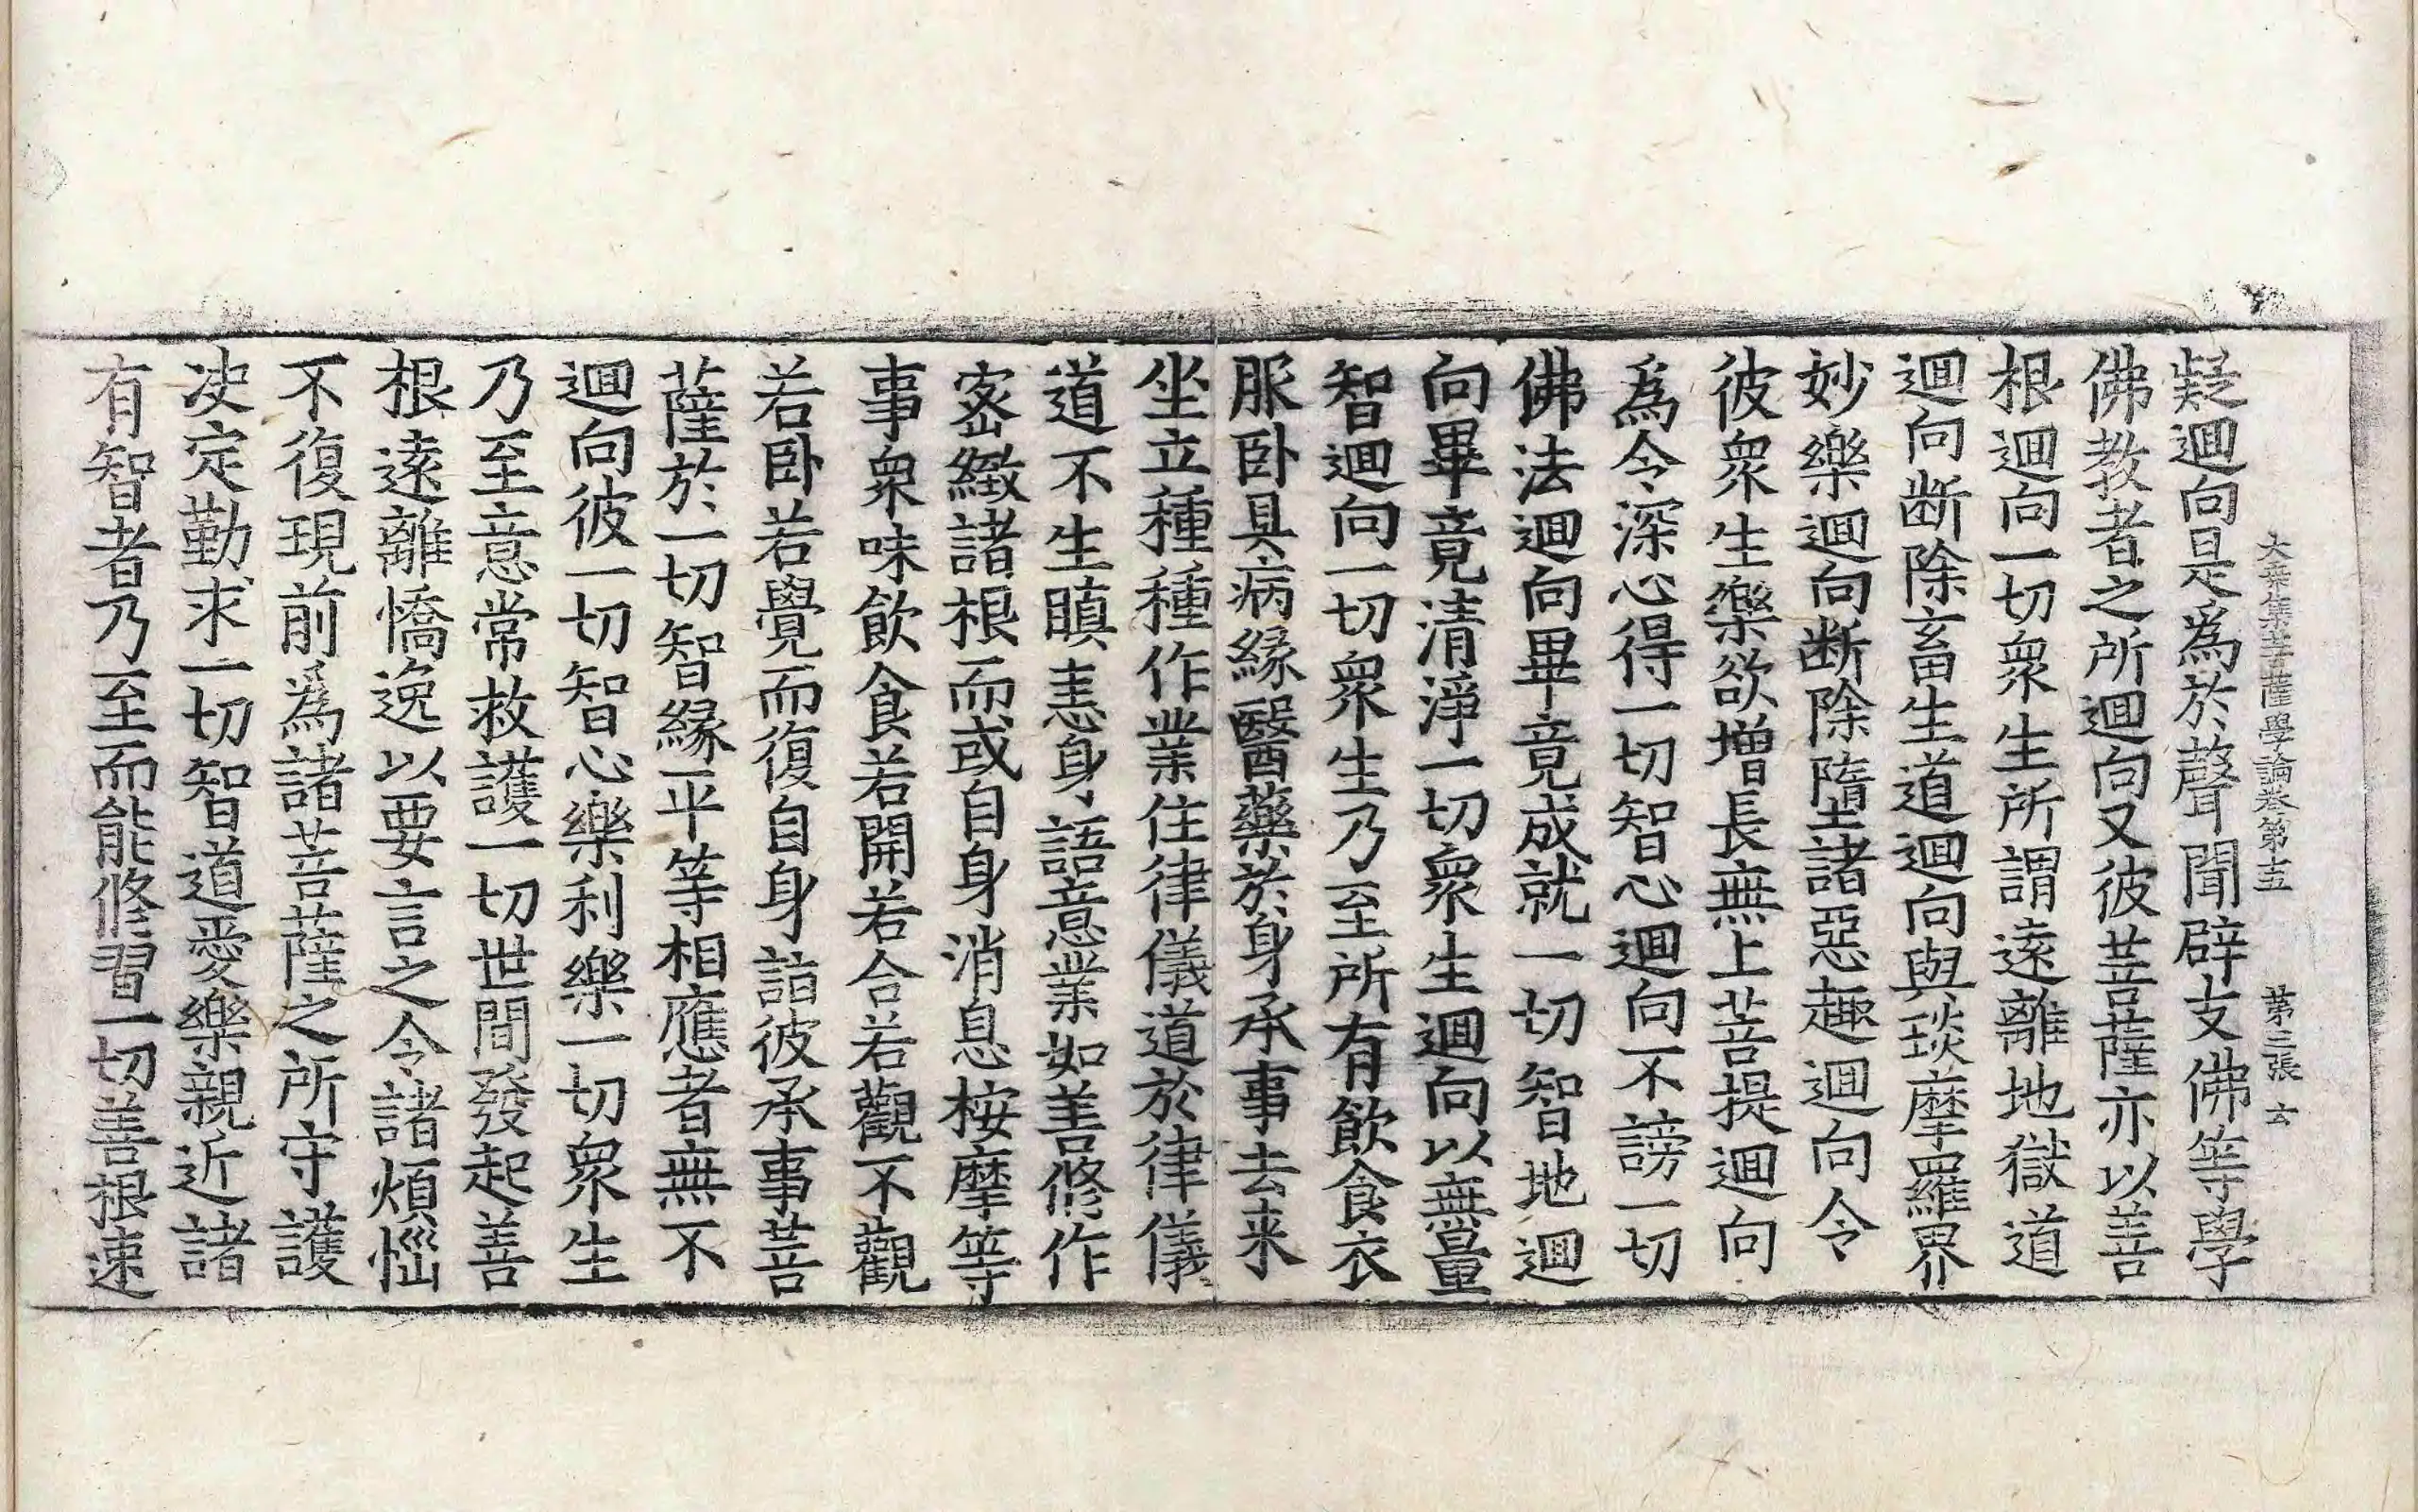 大乘集菩薩學論卷第十五 第三張 玄
疑迴向是爲於聲聞辟支佛等學
佛教者之所迴向又彼菩薩亦以善
根迴向一切衆生所謂遠離地獄道
迴向断除畜生道迴向與琰摩羅界
妙樂迴向断除墮諸惡趣迴向令
彼衆生樂欲增長無上菩提迴向
爲令深心得一切智心迴向不謗一切
佛法迴向畢竟成就一切智地迴
向畢竟清淨一切衆生迴向以無量
智迴向一切衆生乃至所有飲食衣
服卧具病緣醫藥於身承事去来
坐立種種作業住律儀道於律儀
道不生瞋恚身語意業如善修作
宻緻諸根而或自身消息桉摩等
事衆味飲食若開若合若觀不觀
若卧若覺而復自身詣彼承事菩
薩於一切智緣平等相應者無不
迴向彼一切智心樂利樂一切衆生
乃至意常救護一切世間發起善
根遠離憍逸以要言之令諸煩惱
不復現前爲諸菩薩之所守護
决定勤求一切智道愛樂親近諸
有智者乃至而能修習一切善根速